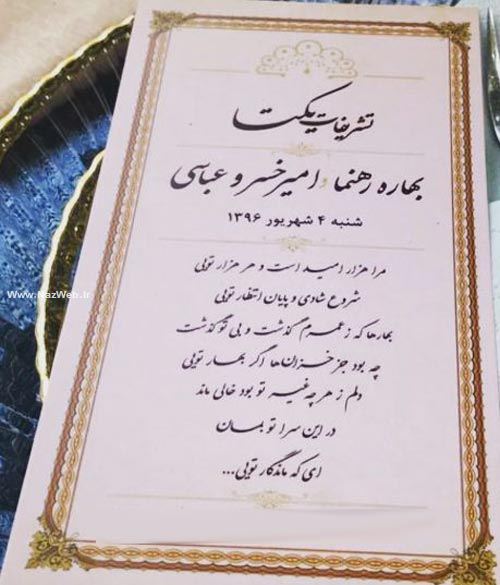 تشریفات یکتا
بهاره رهنما و امیرخسرو عباسی
شنبه ۴ شهریور ۱۳۹۶
مرا هزار امید است و هر هزار تویی
شروع شادی و پایان انتظار تویی
بهارها که ز عمرم گذشت و بی تو گذشت
چه بود جز خزان‌ها اگر بهار تویی
دلم ز هر چه غیر تو بود خالی ماند
در این سرا تو بمان
ای که ماندگار تویی...
Www.NazWeb.ir